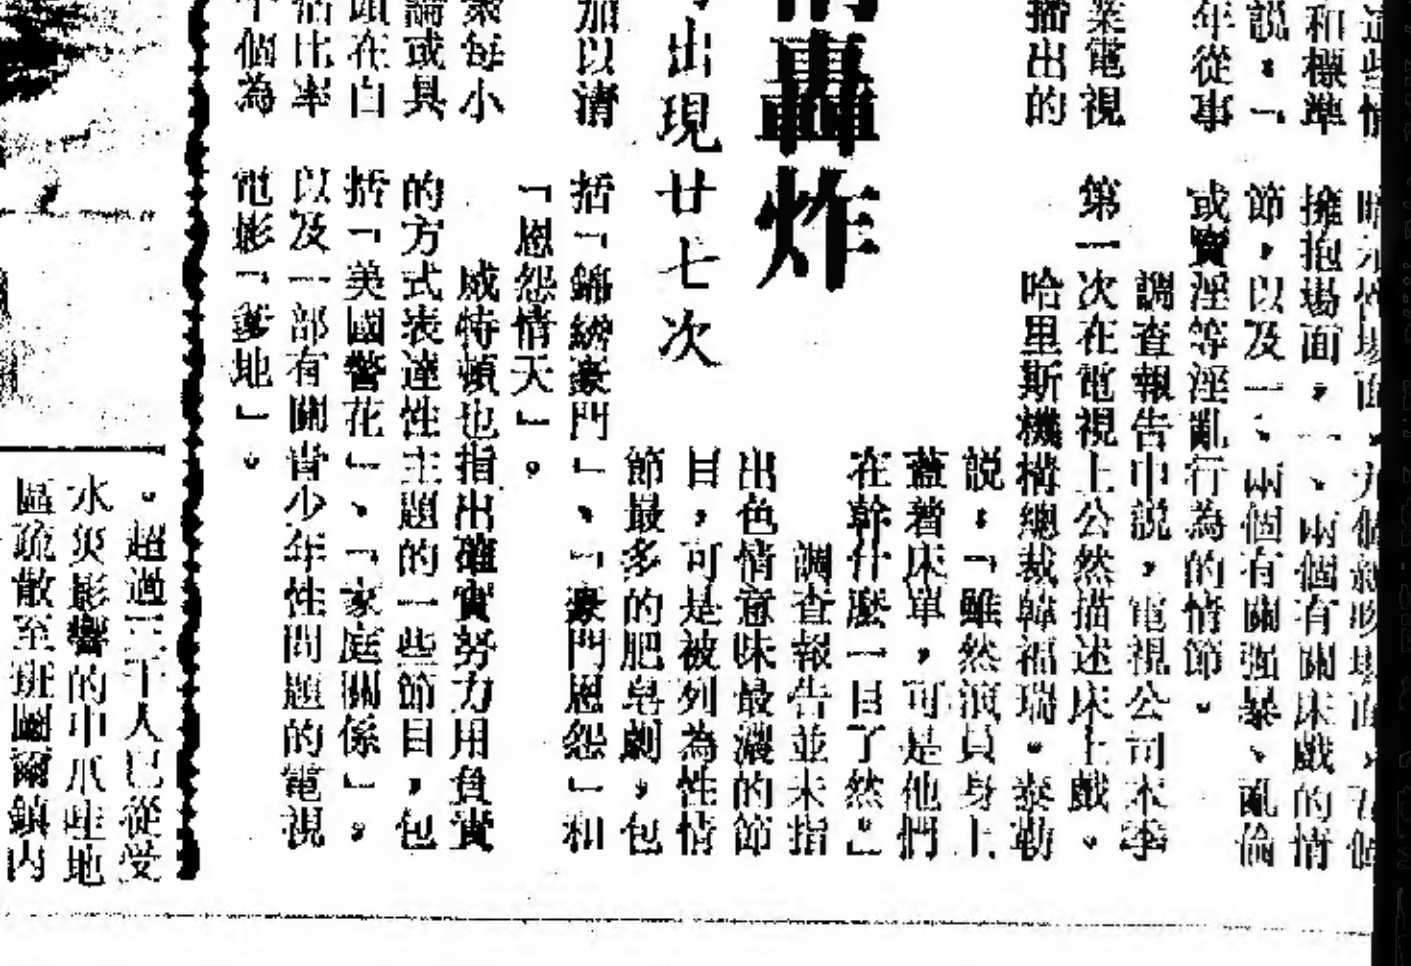 和標準
說：「
年從事
業電視
播出的
轟炸
出現廿七次
加以清
每小
論或具
頭在白
活比率
個為
擁抱場面，一、兩個有關床戲的情
節，以及一、兩個有關強暴、亂倫
或賣淫等淫亂行為的情節。
調查報告中說，電視公司本季
第一次在電視上公然描述床上戲。
哈里斯機構總裁韓福瑞。泰勒
說：「雖然演員身上
蓋着床單，可是他們
在幹什麼一目了然」
調查報告並未指
出色情意味最濃的節
目，可是被列為性情
節最多的肥皂劇，包
括「錦繡豪門」、「豪門恩怨」和
「恩怨情天」。
威特頓也指出確實努力用負責
的方式表達性主題的一些節目，包
括「美國警花」、「家庭關係」。
以及一部有關青少年性問題的電視
電影「地」。
。超過三千人已從受
水災影響的中爪哇地
區疏散至班圖爾鎮內